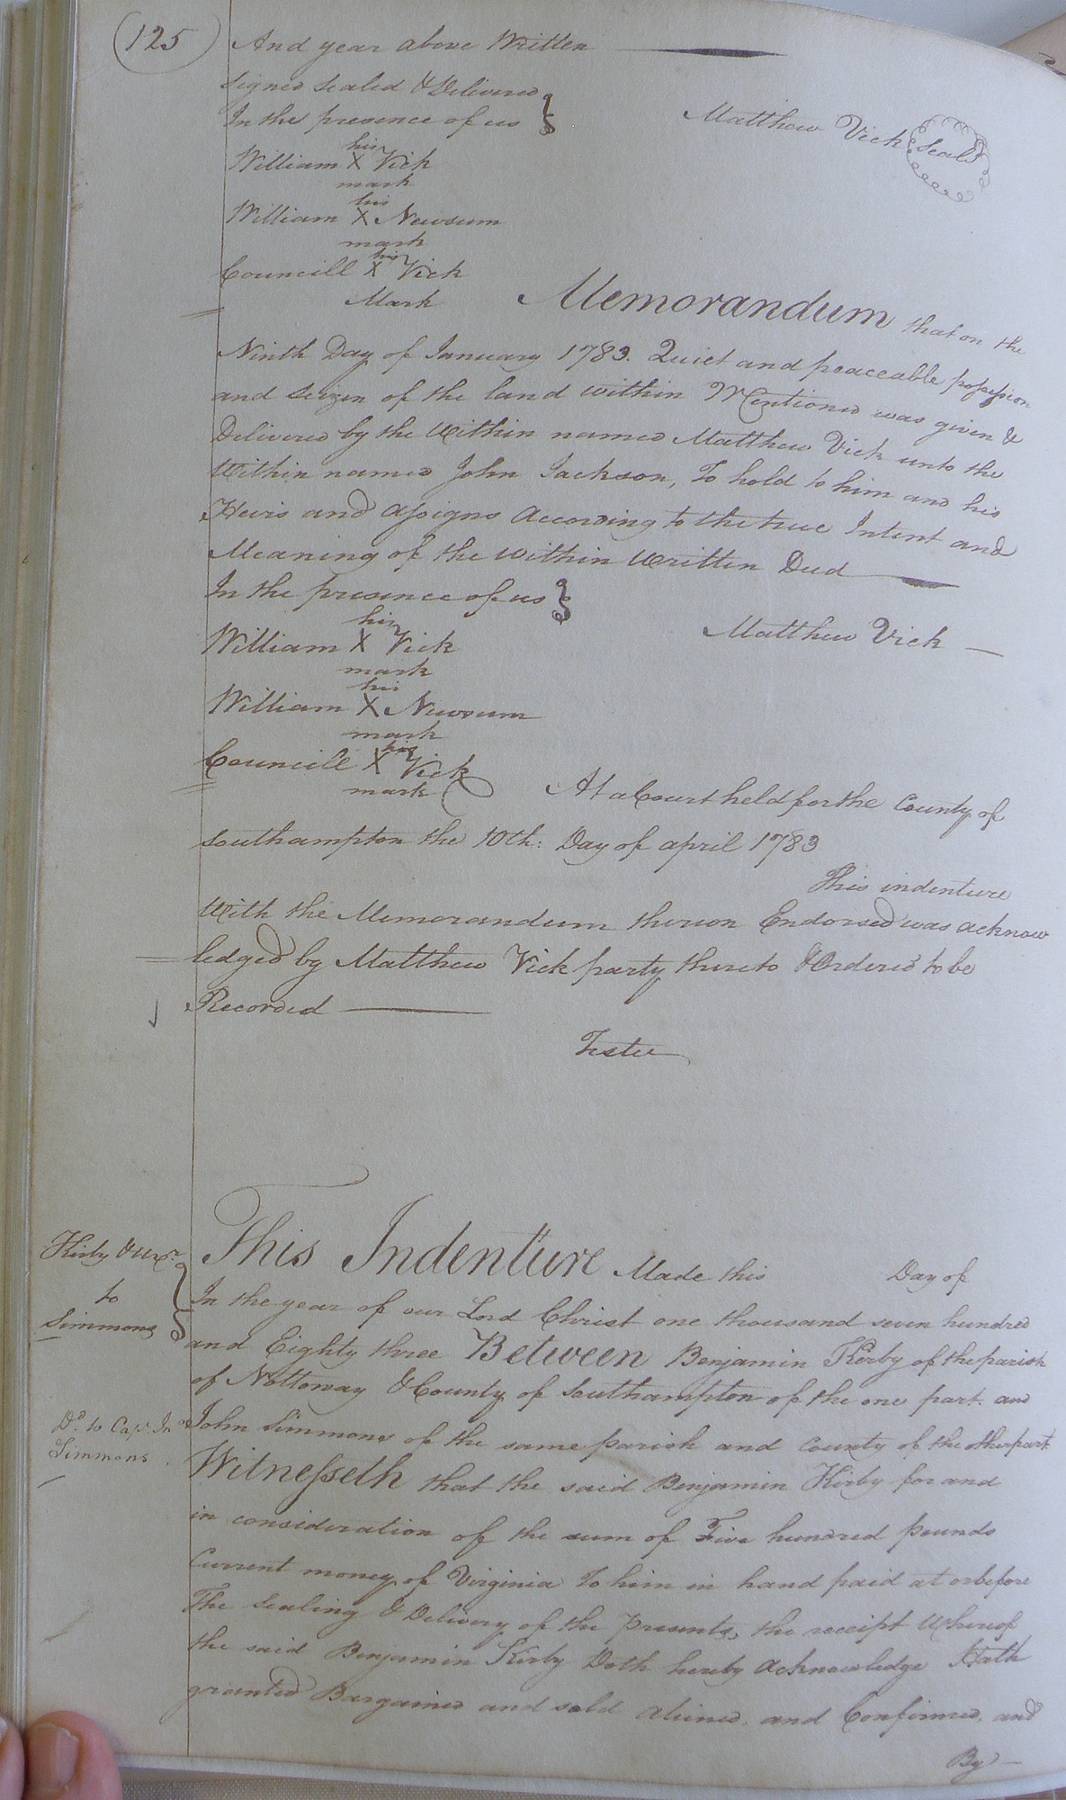 125
And year above Written
Signed Sealed & Delivered
In the presence of us
Matthew Vick Seal
his
William X Vick
mark
his
William X Newsum
mark
his
Councill X Vick
Mark
Memorandum that on the
Ninth Day of January 1783. Quiet and peaceable possession
and Seizen of the land within Mentioned was given &
Delivered by the Within named Matthew Vick unto the
Within named John Jackson, To hold to him and his
Heirs and assigns According to the true Intent and
Meaning of the within Written Deed
In the presence of us
Matthew Vick
his
William X Vick
mark
his
William X Newsum
mark
his
Councill X Vick
mark
At a Court held for the County of
Southampton the 10th: Day of april 1783
This indenture
With the Memorandum theron Endorsed was acknow
ledged by Matthew Vick party thereto & Ordered to be
Recorded
Teste
Kirby & Uxr.
to
Simmons
This Indenture Made this Day of
In the year of our Lord Christ one thousand seven hundred
and Eighty three Between Benjamin Kirby of the parish
of Nottoway & County of Southampton of the one part. and
Dd. to Cap. Jno
Simmons
John Simmons of the same parish and County of the other part
Witnesseth that the said Benjamin Kirby for and
in consideration of the sum of Five hundred pounds
Current money of Virginia To him in hand paid at or before
The Sealing & Delivery of the Presents, the receipt Whereof
the said Benjamin Kirby Doth hereby Acknowledge Hath
granted Bargained and sold aliened, and Confirmed, and
By